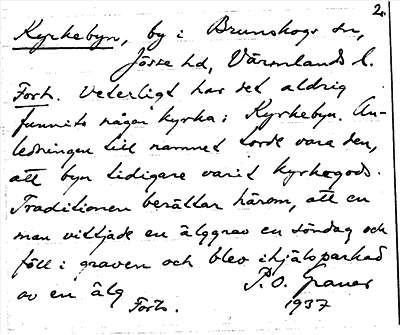 2.
Kyrkebyn, by i Brunskogs sn,
Jösse hd, Värmlands l.
Forts. Veterligt har det aldrig
funnits någon kyrka i Kyrkebyn. An-
ledningen till namnet torde vara den,
att byn tidigare varit kyrkogods.
Traditionen berättar härom, att en
man vittjade en älggrav en söndag och
föll i graven och blev ihjälsparkad
av en älg
P. O. Graner
Forts. 1937